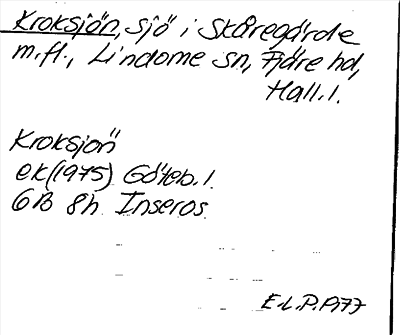 Kroksjön, sjö i Skåregärde
m.fl., Lindome sn, Fjäre hd,
Hall. l.
Kroksjön
ek (1975) Göteb. l.
6B 8h Inseros
E.L.P. 1977